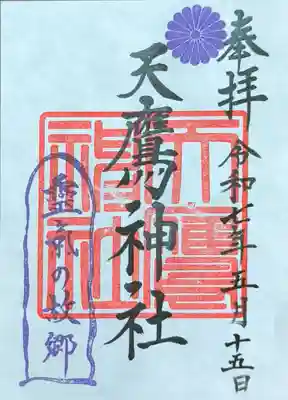 奉拝 令和七年五月十五日
天鷹神社
天鷹
神社
霊氣の故郷